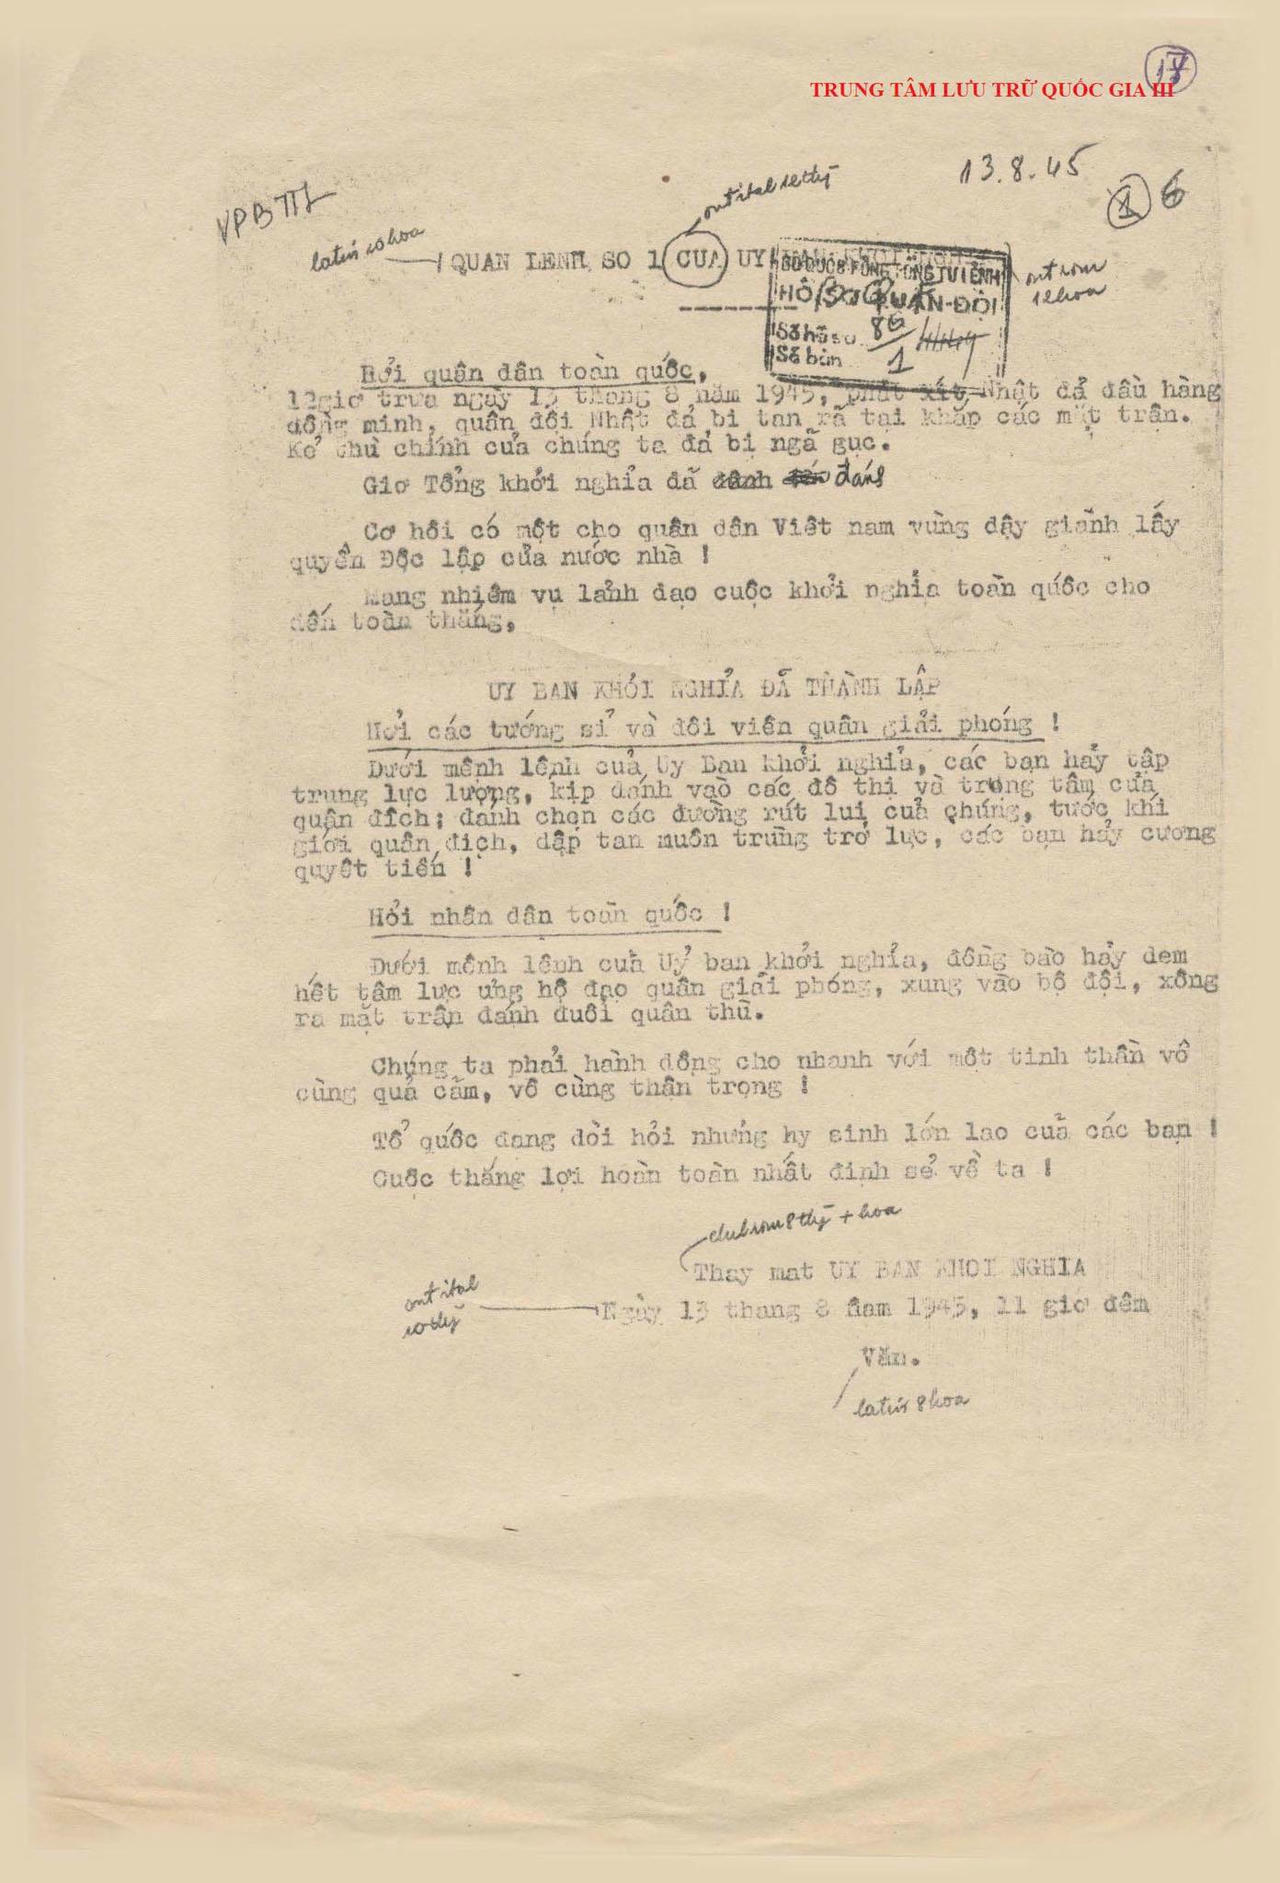 TRUNG TÂM LƯU TRỮ QUỐC GIA III
13.8.45
6
VPBTTL
QUAN LENH SO 1 CUA UY
HỒ SƠ QUÂN-ĐỘI
Số hồ sơ 86
Số bản 1
Hởi quân dân toàn quốc,
12giơ trưa ngày 13 thang 8 năm 1945, phát xít Nhật đả đầu hàng
đồng minh, quân đội Nhật đả bi tan rã tại khắp các mặt trận.
Kẻ thù chính cuả chúng ta đả bị ngã gục.
Giơ Tổng khởi nghỉa đã đánh
Cơ hôi có một cho quân dân Viêt nam vùng đậy giành lấy
quyền Độc lập của nước nhà !
Mang nhiệm vụ lảnh đạo cuộc khởi nghỉa toàn quốc cho
đến toàn thắng,
UY BAN KHỎI NGHỈA ĐÃ THÀNH LẬP
Hởi các tướng sỉ và đôi viên quân giải phóng !
Dưới mênh lênh cuả Uy Ban khởi nghỉa, các bạn hảy tập
trung lực lượng, kip đánh vào các đô thi và trọng tâm của
quân đich; đánh chẹn các đường rút lui cuả chúng, tước khí
giới quân đich, dập tan muôn trùng trở lực, các bạn hảy cương
quyêt tiến !
Hỏi nhân dân toàn quốc !
Dưới mênh lênh cuả Uỷ ban khởi nghỉa, đồng bào hảy dem
hết tâm lực ủng hộ đạo quân giải phóng, xung vào bộ đội, xông
ra mặt trận đánh đuổi quân thù.
Chúng ta phải hành động cho nhanh với một tinh thần vô
cùng quả cảm, vô cùng thận trọng !
Tổ quốc đang đòi hỏi nhưng hy sinh lớn lao cuả các bạn !
Cuộc thắng lợi hoàn toàn nhất định sẻ về ta !
Thay mat UY BAN KHOI NGHIA
Ngày 13 thang 8 ñam 1945, 11 giơ đêm
Văn.